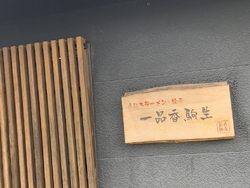 ラーメン・餃子
一品香駒生